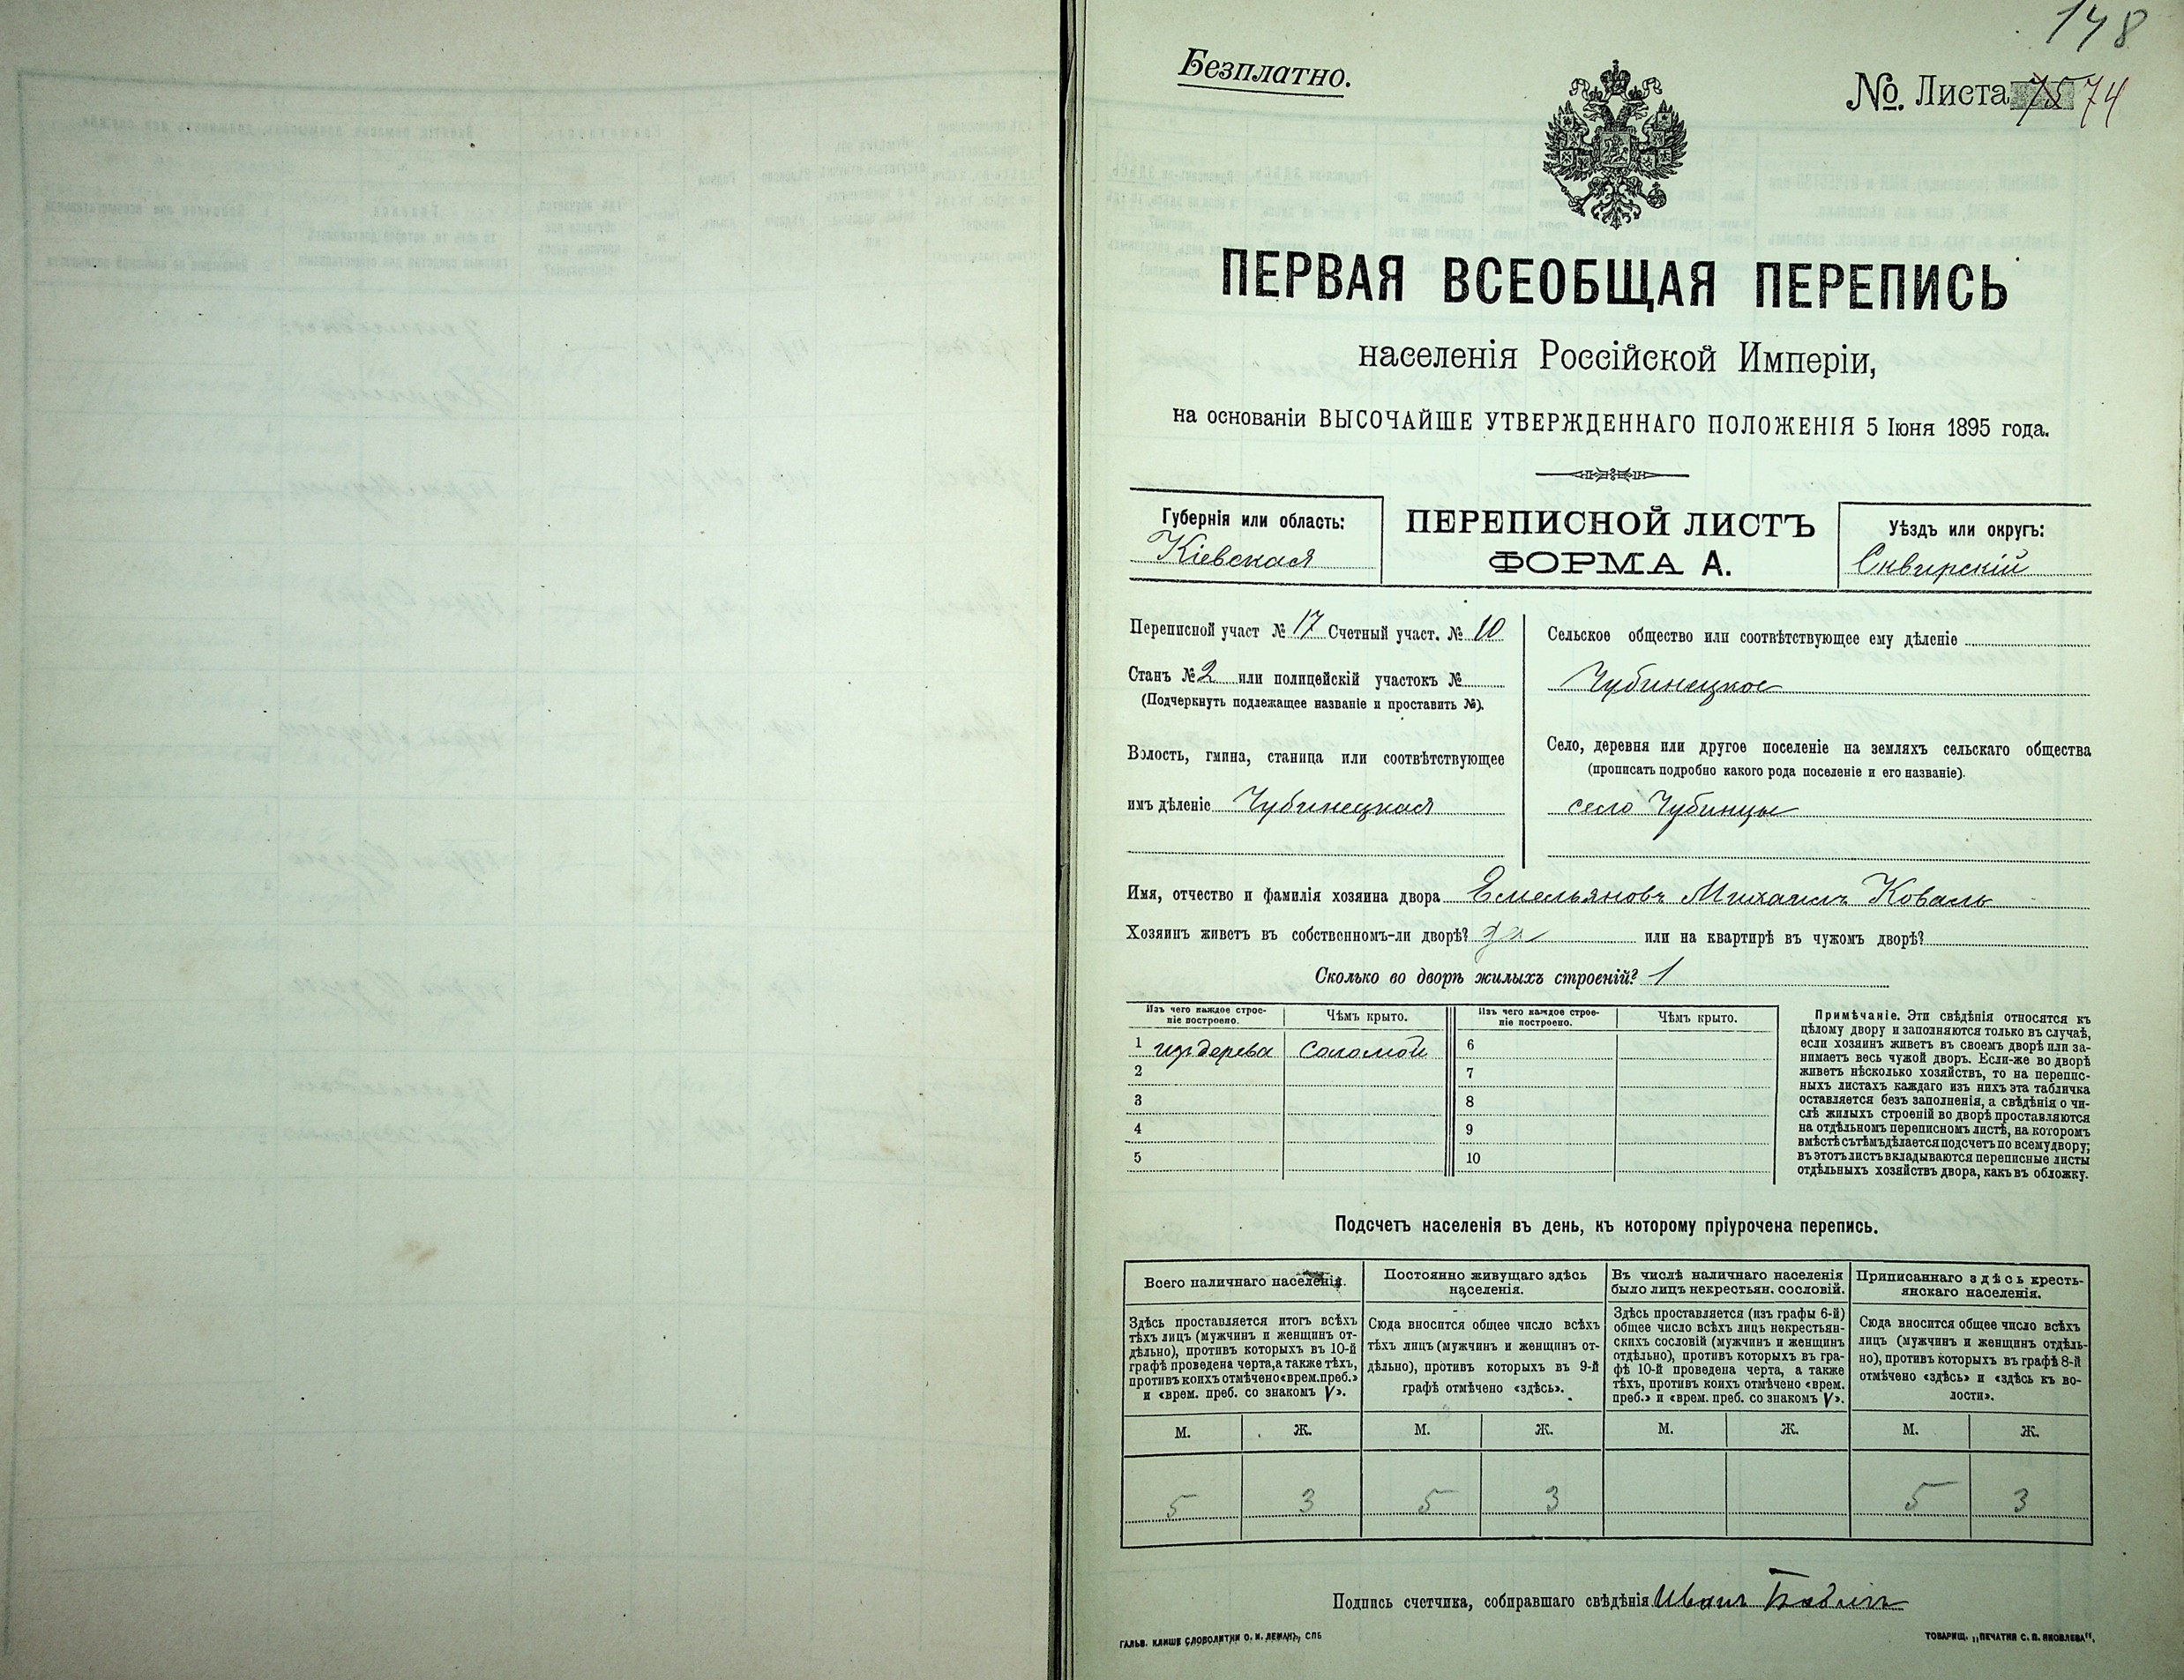 148
Безплатно.
№ Листа 75 74
ПЕРВАЯ ВСЕОБЩАЯ ПЕРЕПИСЬ
населенія Россійской Имперіи,
на основаніи ВЫСОЧАЙШЕ УТВЕРЖДЕННАГО ПОЛОЖЕНІЯ 5 Іюня 1895 года.
Губернія или область:
Кіевская
ПЕРЕПИСНОЙ ЛИСТЪ
ФОРМА А.
Уѣздъ или округъ:
Сквирскій
Переписной участ № 17 Счетный участ. № 10
Станъ № 2 или полицейскій участокъ №
(Подчеркнуть подлежащее названіе и проставить №).
Волость, гмина, станица или соотвѣтствующее
имъ дѣленіе Чубинецкая
Сельское общество или соотвѣтствующее ему дѣленіе
Чубинецкое
Село, деревня или другое поселеніе на земляхъ сельскаго общества
(прописать подробно какого рода поселеніе и его названіе).
село Чубинцы
Имя, отчество и фамилія хозяина двора Емельяновъ Михаилъ Коваль
Хозяинъ живетъ въ собственномъ-ли дворѣ? да или на квартирѣ въ чужомъ дворѣ?
Сколько во дворѣ жилыхъ строеній? 1
Изъ чего каждое строе-
ніе построено.
Чѣмъ крыто.
Изъ чего каждое строе-
ніе построено.
Чѣмъ крыто.
1 изъ дерева соломой 6
2 7
3 8
4 9
5 10
Примѣчаніе. Эти свѣдѣнія относятся къ
цѣлому двору и заполняются только въ случаѣ,
если хозяинъ живетъ въ своемъ дворѣ или за-
нимаетъ весь чужой дворъ. Если-же во дворѣ
живетъ нѣсколько хозяйствъ, то на перепис-
ныхъ листахъ каждаго изъ нихъ эта табличка
оставляется безъ заполненія, а свѣдѣнія о чи-
слѣ жилыхъ строеній во дворѣ проставляются
на отдѣльномъ переписномъ листѣ, на которомъ
вмѣстѣ съ тѣмъ дѣлается подсчетъ по всему двору;
въ этотъ листъ вкладываются переписные листы
отдѣльныхъ хозяйствъ двора, какъ въ обложку.
Подсчетъ населенія въ день, къ которому пріурочена перепись.
Всего наличнаго населенія.
Здѣсь проставляется итогъ всѣхъ
тѣхъ лицъ (мужчинъ и женщинъ от-
дѣльно), противъ которыхъ въ 10-й
графѣ проведена черта, а также тѣхъ,
противъ коихъ отмѣчено «врем. преб.»
и «врем. преб. со знакомъ V».
Постоянно живущаго здѣсь
населенія.
Сюда вносится общее число всѣхъ
тѣхъ лицъ (мужчинъ и женщинъ от-
дѣльно), противъ которыхъ въ 9-й
графѣ отмѣчено «здѣсь».
Въ числѣ наличнаго населенія
было лицъ некрестьян. сословій.
Здѣсь проставляется (изъ графы 6-й)
общее число всѣхъ лицъ некрестьян-
скихъ сословій (мужчинъ и женщинъ
отдѣльно), противъ которыхъ въ гра-
фѣ 10-й проведена черта, а также
тѣхъ, противъ коихъ отмѣчено «врем.
преб.» и «врем. преб. со знакомъ V».
Приписаннаго здѣсь кресть-
янскаго населенія.
Сюда вносится общее число всѣхъ
лицъ (мужчинъ и женщинъ отдѣль-
но), противъ которыхъ въ графѣ 8-й
отмѣчено «здѣсь» и «здѣсь къ во-
лости».
М. Ж. М. Ж. М. Ж. М. Ж.
5 3 5 3 5 3
Подпись счетчика, собиравшаго свѣдѣнія Иванъ
ГАЛЬВ. КЛИШЕ СЛОВОЛИТНИ О. И. ЛЕМАНЪ, СПБ
ТОВАРИЩ. „ПЕЧАТНЯ С. П. ЯКОВЛЕВА“.